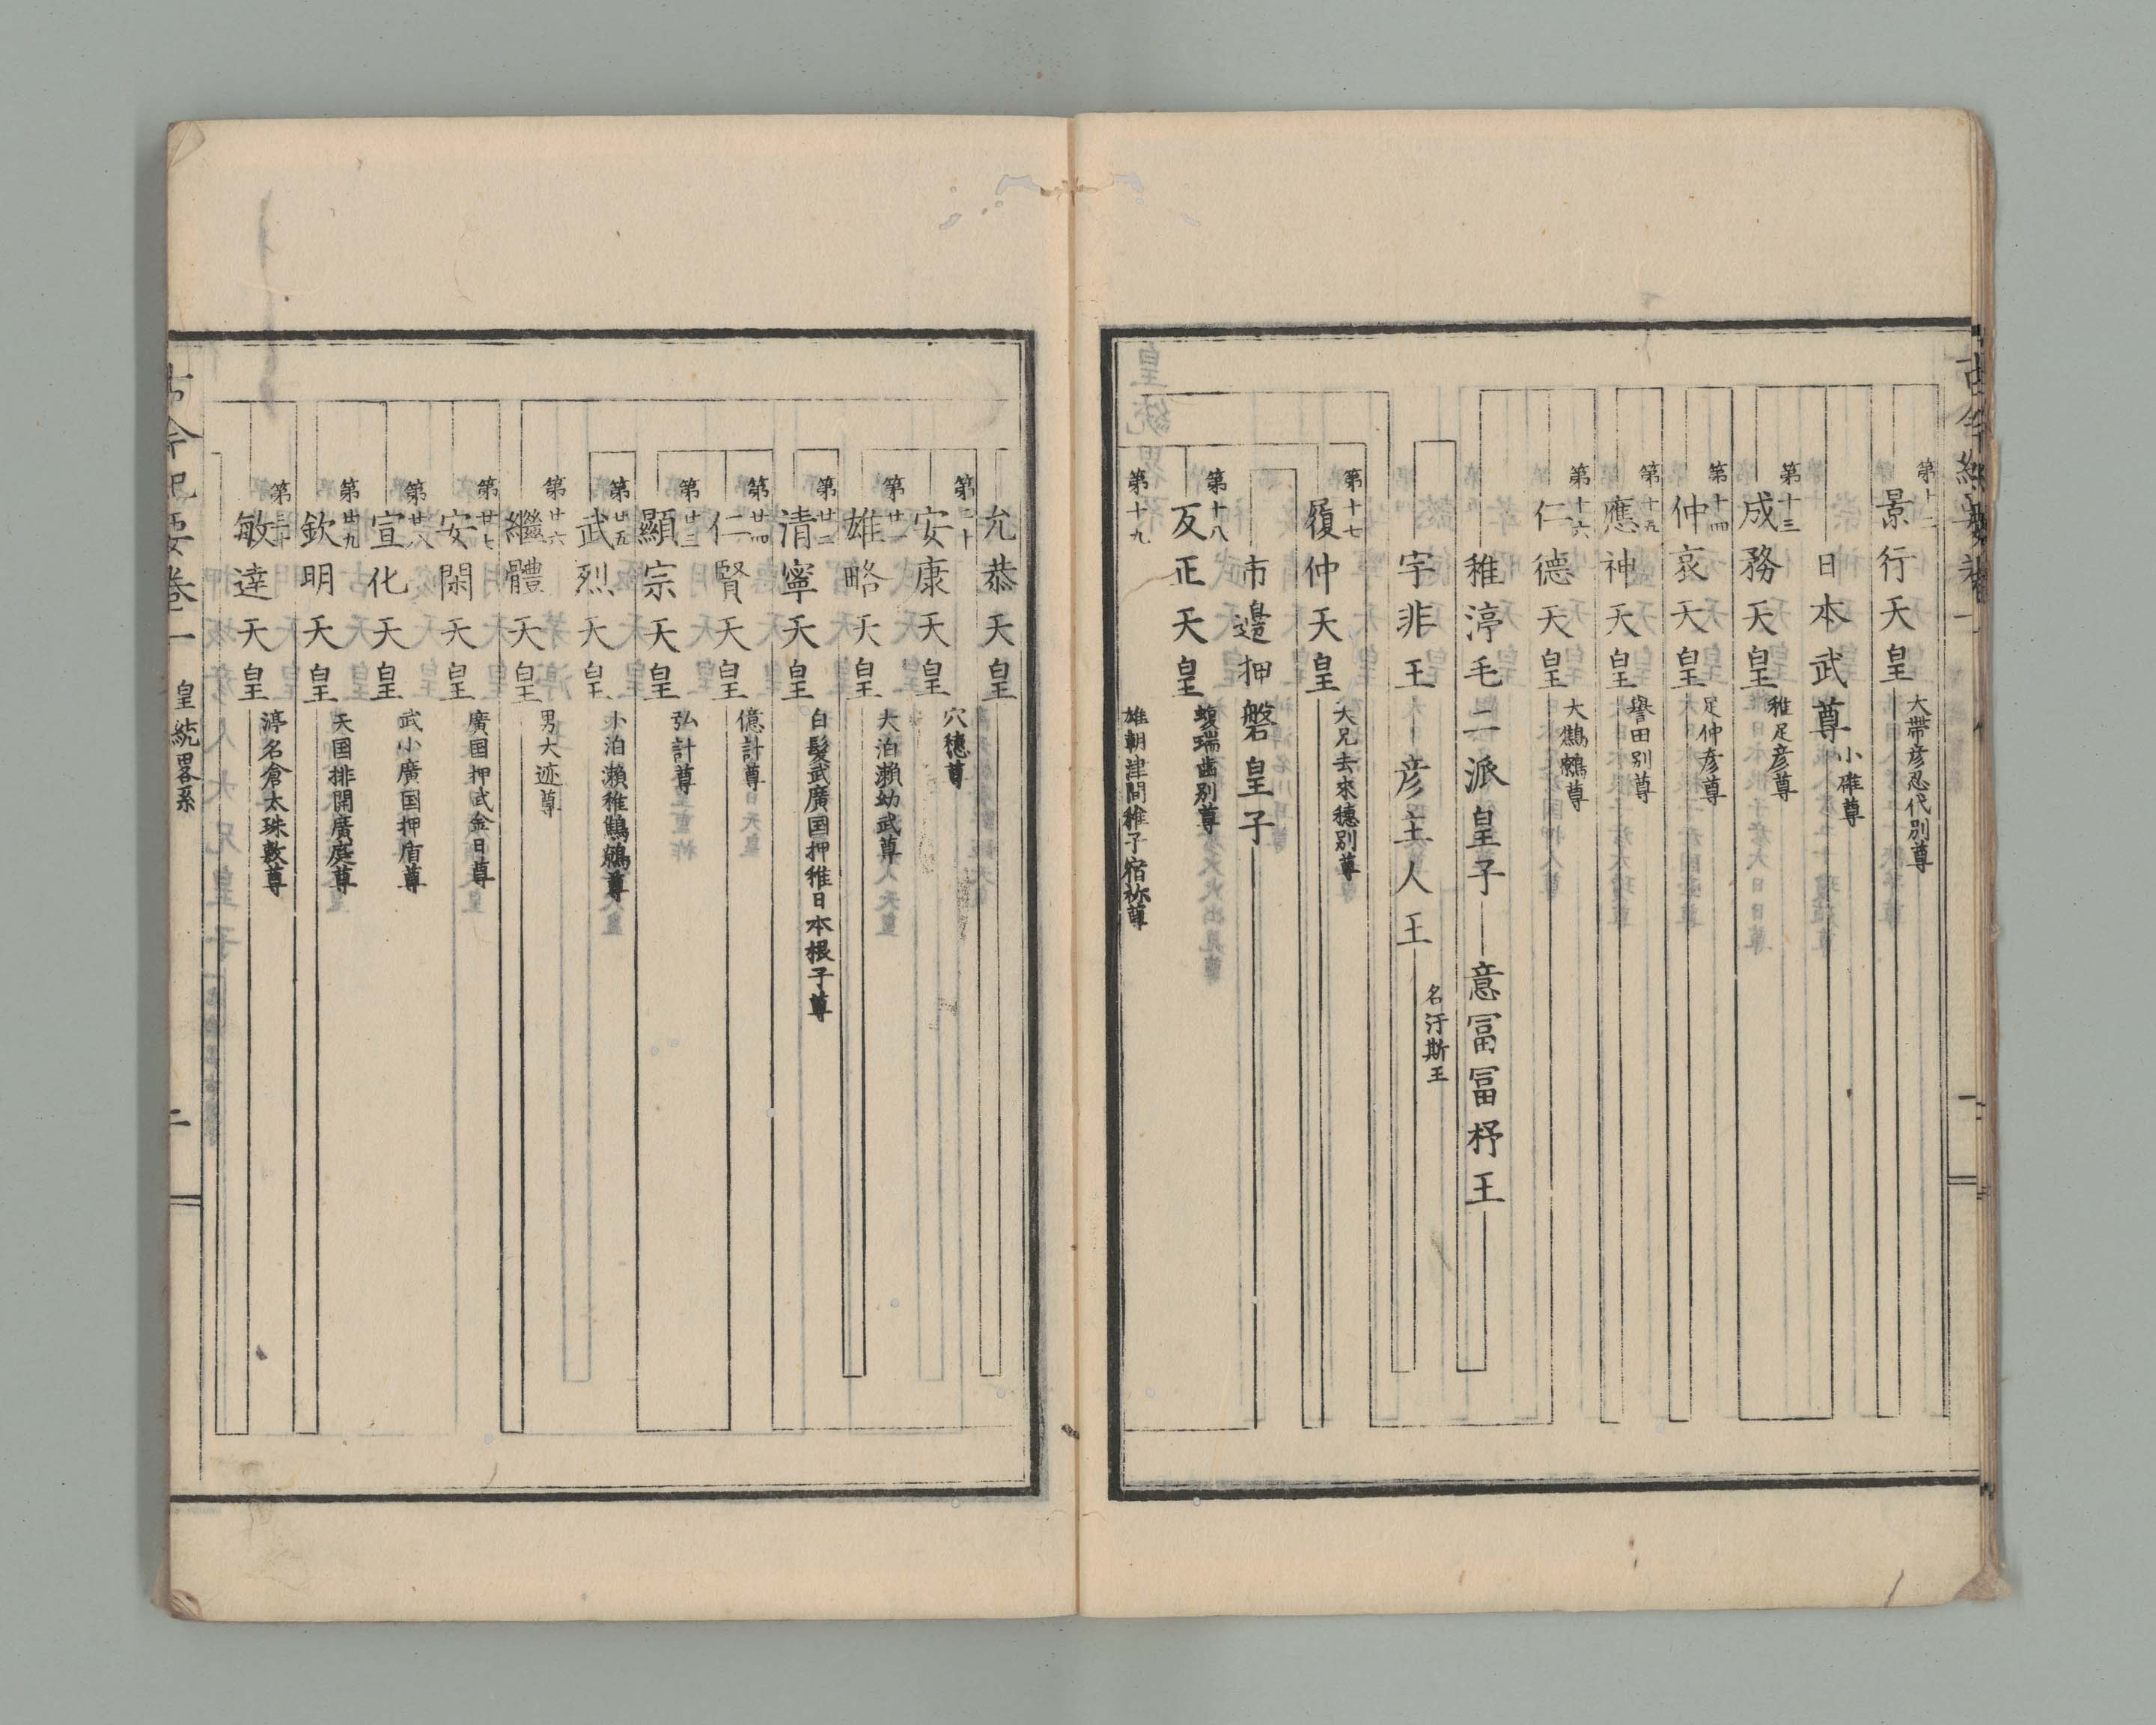 古今紀要卷一
第十二
景行天皇 大帶彦忍代別尊
日本武尊 小碓尊
第十三
成務天皇 稚足彦尊
第十四
仲哀天皇 足仲彦尊
第十五
應神天皇 譽田別尊
第十六
仁德天皇 大鷦鷯尊
稚渟毛二派皇子 意冨冨杼王
宇非王 彦主人王 名汙斯王
第十七
履仲天皇 大兄去來穗別尊
市邊押磐皇子
第十八
反正天皇 瑞齒別尊
第十九
雄朝津間稚子宿祢尊
允恭天皇
第二十
安康天皇 穴穗尊
第廿一
雄略天皇 大泊瀬幼武尊
第廿二
清寧天皇 白髮武廣国押稚日本根子尊
第廿四
仁賢天皇 億計尊
第廿三
顯宗天皇 弘計尊
第廿五
武烈天皇 小泊瀬稚鷦鷯尊
第廿六
繼體天皇 男大迹尊
第廿七
安閑天皇 廣国押武金日尊
第廿八
宣化天皇 武小廣国押盾尊
第廿九
欽明天皇 天国排開廣庭尊
第三十
敏達天皇 渟名倉太珠敷尊
古今紀要卷一 皇統畧系 二